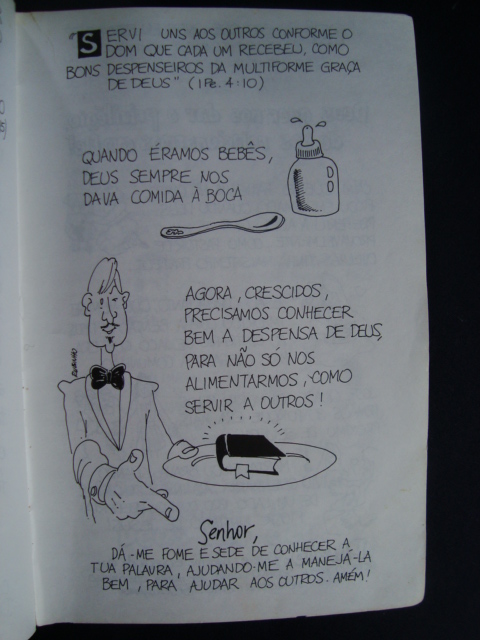 "SERVI UNS AOS OUTROS CONFORME O
DOM QUE CADA UM RECEBEU, COMO
BONS DESPENSEIROS DA MULTIFORME GRAÇA
DE DEUS" (1 Pe. 4:10)
QUANDO ÉRAMOS BEBÊS,
DEUS SEMPRE NOS
DAVA COMIDA À BOCA
AGORA, CRESCIDOS,
PRECISAMOS CONHECER
BEM A DESPENSA DE DEUS,
PARA NÃO SÓ NOS
ALIMENTARMOS, COMO
SERVIR A OUTROS!
Senhor,
DÁ-ME FOME E SEDE DE CONHECER A
TUA PALAVRA, AJUDANDO-ME A MANEJÁ-LA
BEM, PARA AJUDAR AOS OUTROS. AMÉM!